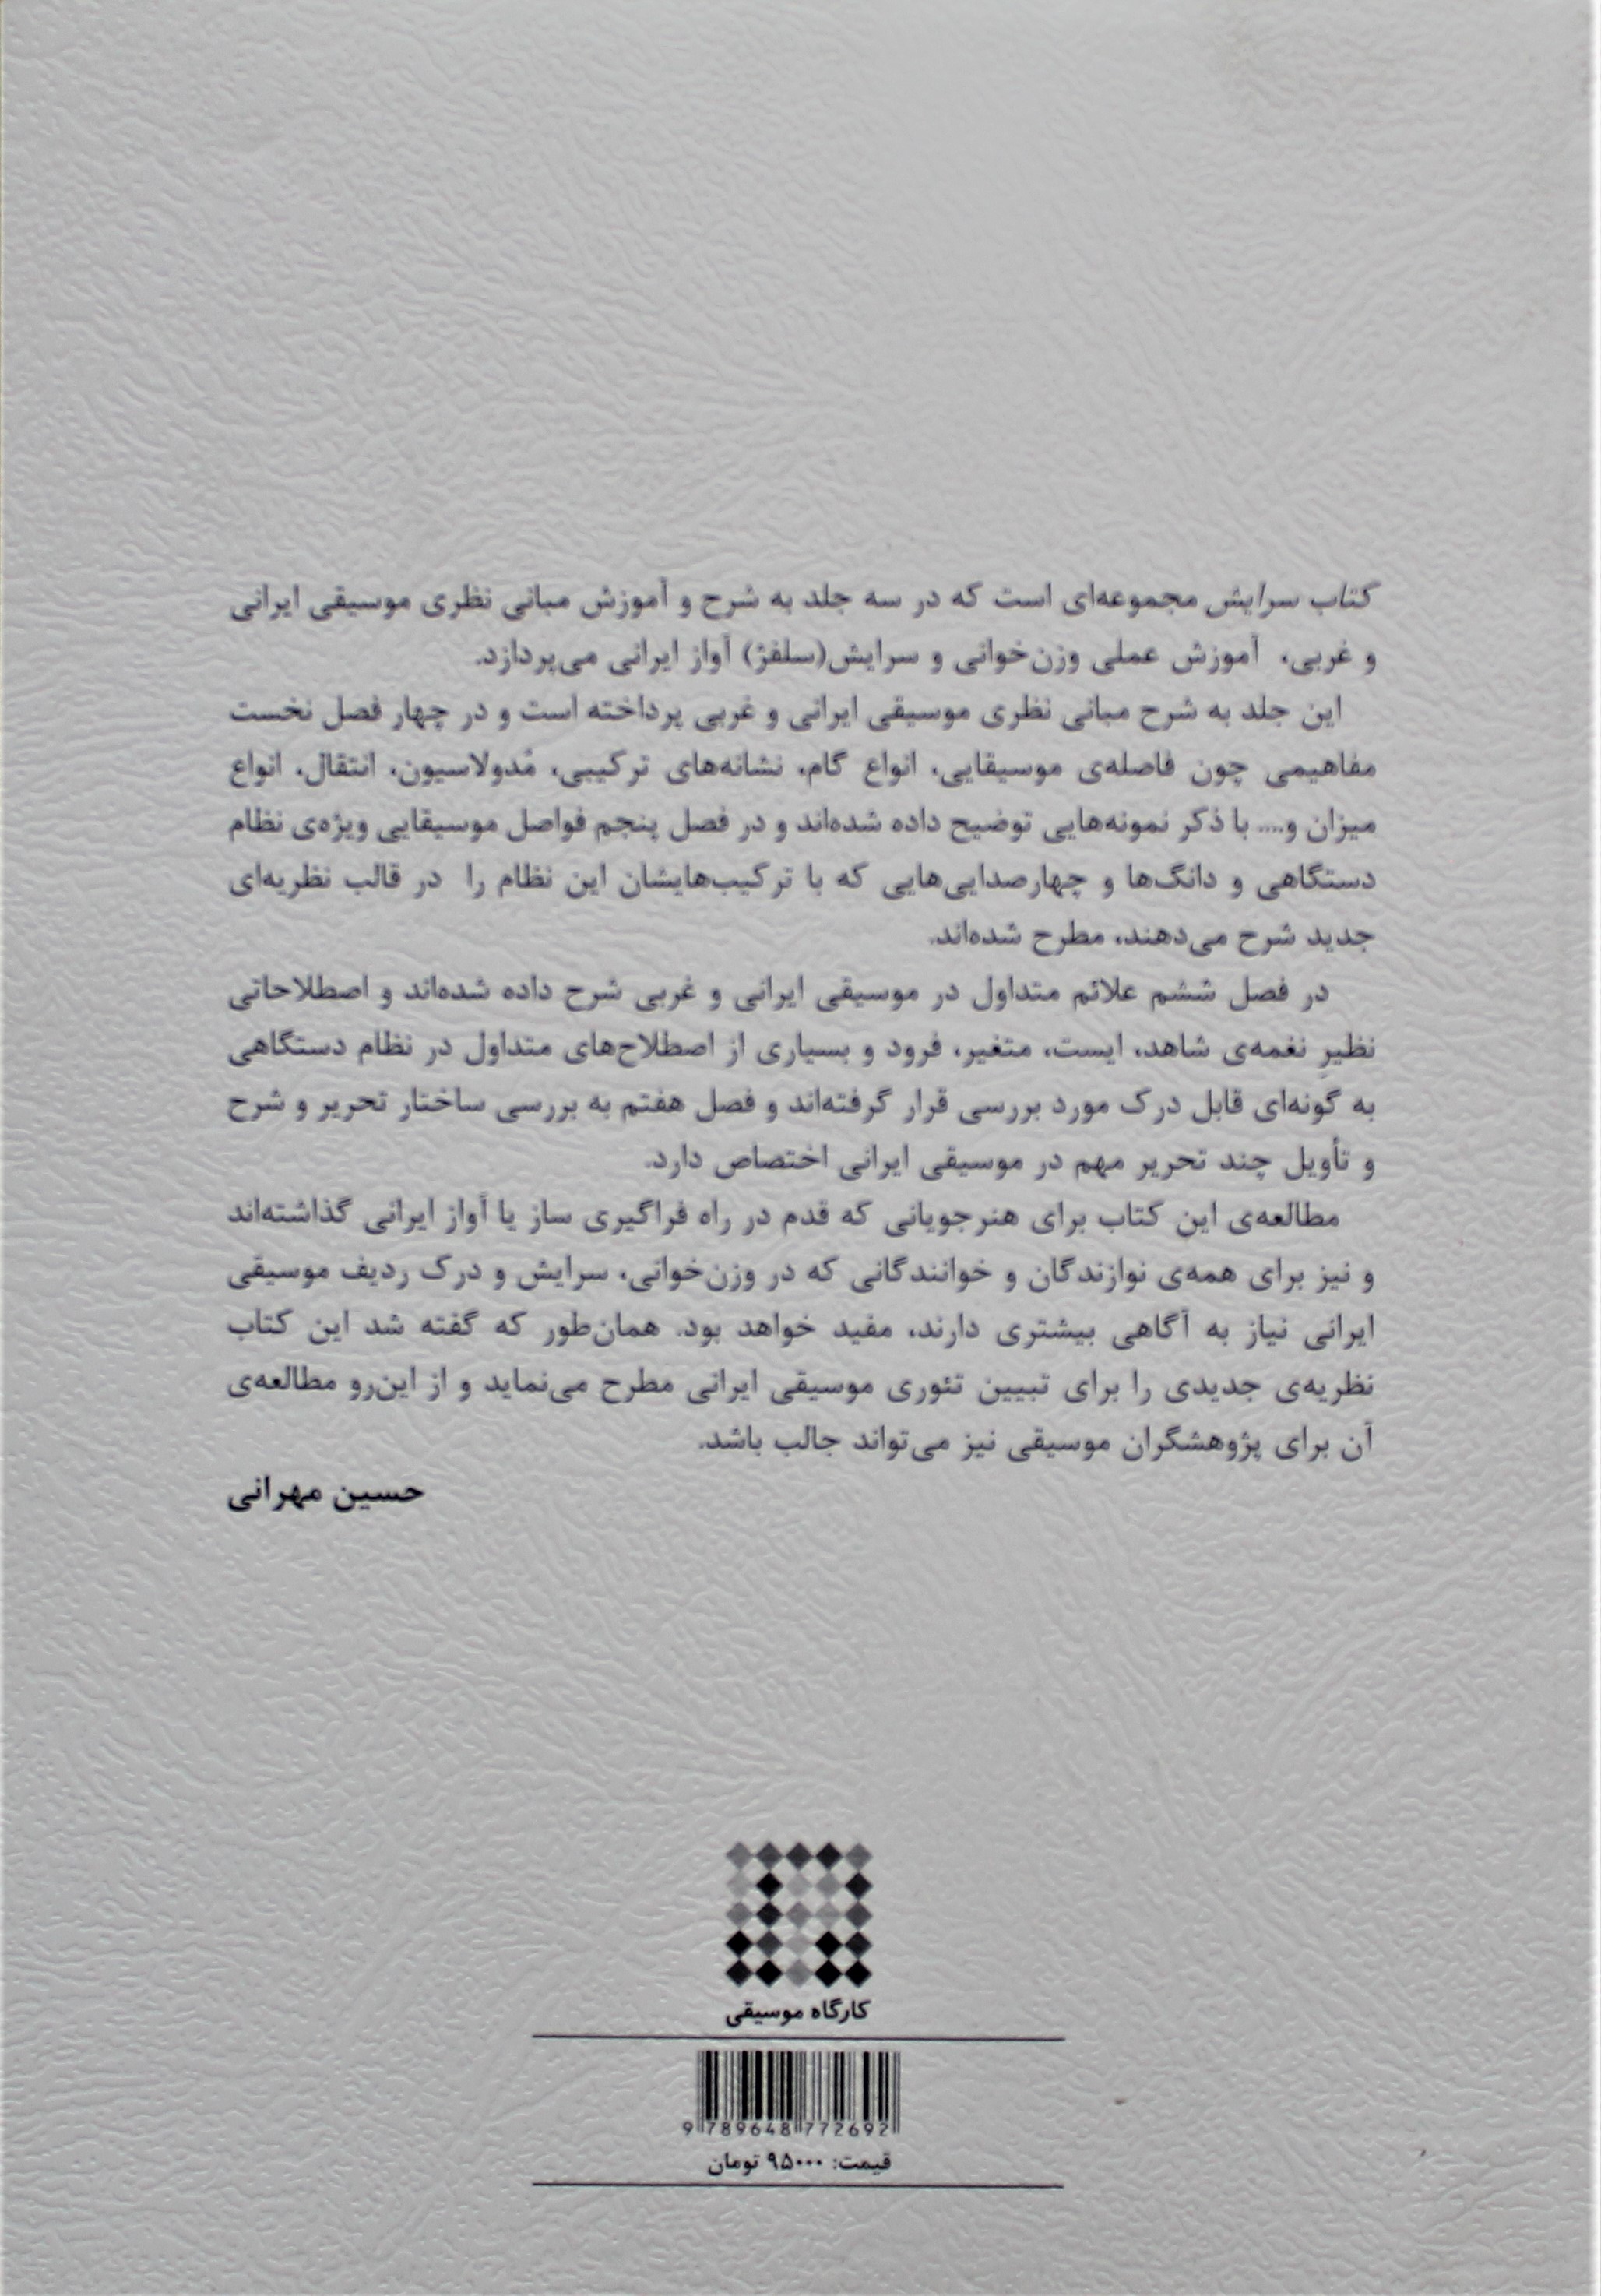 کتاب سرایش مجموعه‌ای است که در سه جلد به شرح و آموزش مبانی نظری موسیقی ایرانی
و غربی، آموزش عملی وزن‌خوانی و سرایش(سلفژ) آواز ایرانی می‌پردازد.
این جلد به شرح مبانی نظری موسیقی ایرانی و غربی پرداخته است و در چهار فصل نخست
مفاهیمی چون فاصله‌ی موسیقایی، انواع گام، نشانه‌های ترکیبی، مُدولاسیون، انتقال، انواع
میزان و.... با ذکر نمونه‌هایی توضیح داده شده‌اند و در فصل پنجم فواصل موسیقایی ویژه‌ی نظام
دستگاهی و دانگ‌ها و چهارصدایی‌هایی که با ترکیب‌هایشان این نظام را در قالب نظریه‌ای
جدید شرح می‌دهند، مطرح شده‌اند.
در فصل ششم علائم متداول در موسیقی ایرانی و غربی شرح داده شده‌اند و اصطلاحاتی
نظیرِ نغمه‌ی شاهد، ایست، متغیر، فرود و بسیاری از اصطلاح‌های متداول در نظام دستگاهی
به گونه‌ای قابل درک مورد بررسی قرار گرفته‌اند و فصل هفتم به بررسی ساختار تحریر و شرح
و تأویل چند تحریر مهم در موسیقی ایرانی اختصاص دارد.
مطالعه‌ی این کتاب برای هنرجویانی که قدم در راه فراگیری ساز یا آواز ایرانی گذاشته‌اند
و نیز برای همه‌ی نوازندگان و خوانندگانی که در وزن‌خوانی، سرایش و درک ردیف موسیقی
ایرانی نیاز به آگاهی بیشتری دارند، مفید خواهد بود. همان‌طور که گفته شد این کتاب
نظریه‌ی جدیدی را برای تبیین تئوری موسیقی ایرانی مطرح می‌نماید و از این‌رو مطالعه‌ی
آن برای پژوهشگران موسیقی نیز می‌تواند جالب باشد.
حسین مهرانی
کارگاه موسیقی
9 789648 772692
قیمت: ۹۵۰۰۰ تومان